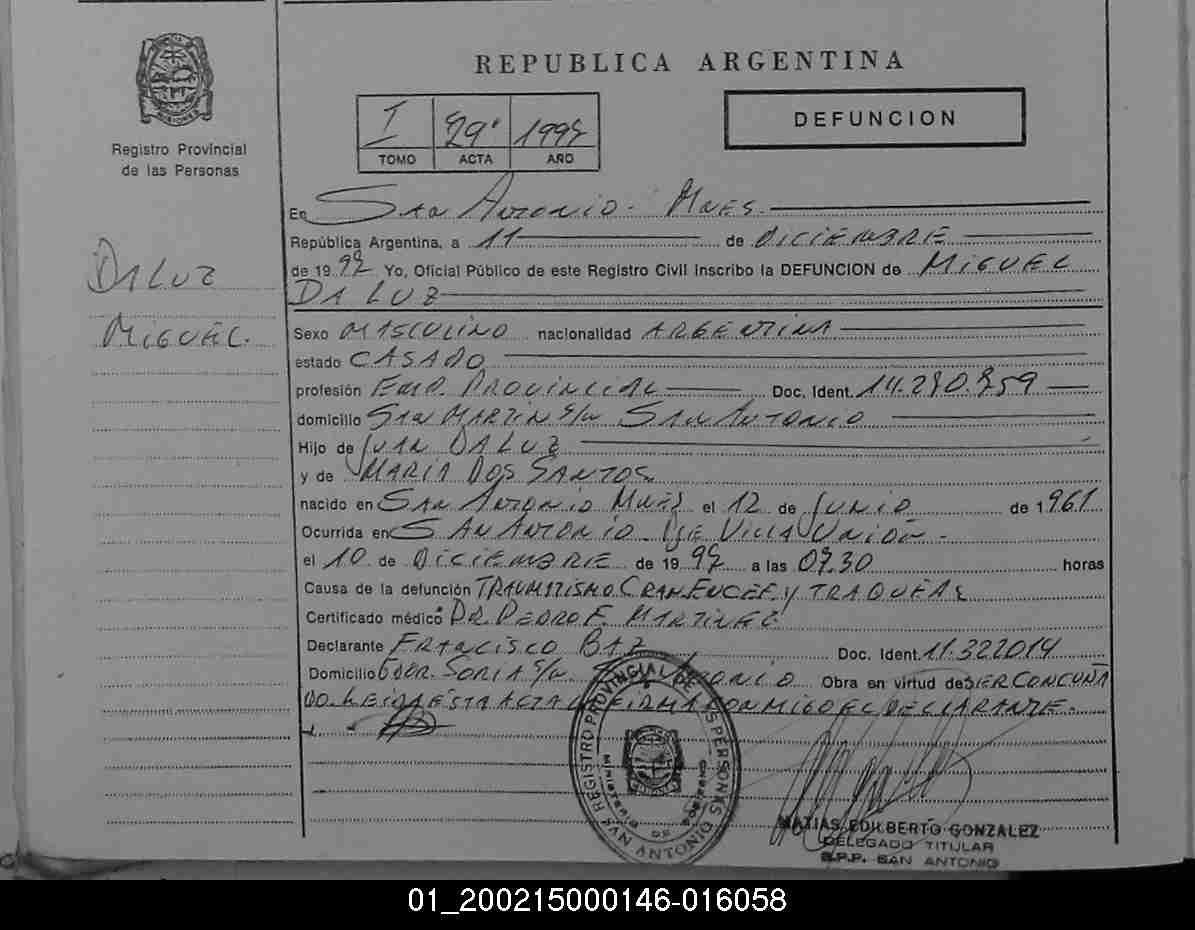 REPUBLICA ARGENTINA
Registro Provincial
de las Personas
I 29º 1997
TOMO ACTA AÑO
DEFUNCION
DA LUZ
MIGUEL.
En San Antonio - Mnes.
República Argentina, a 11 de DICIEMBRE
de 1997 Yo, Oficial Público de este Registro Civil inscribo la DEFUNCION de MIGUEL
DA LUZ
Sexo MASCULINO nacionalidad ARGENTINA
estado CASADO
profesión EMP. PROVINCIAL Doc. Ident. 14.270.759
domicilio SAN MARTIN S/N SAN ANTONIO
Hijo de JUAN DA LUZ
y de MARIA DOS SANTOS
nacido en SAN ANTONIO Mnes el 12 de JUNIO de 1961
Ocurrida en SAN ANTONIO VILLA UNION -
el 10 de DICIEMBRE de 1997 a las 07.30 horas
Causa de la defunción TRAUMATISMO CRAN. ENCEF. y TRAQUEAL
Certificado médico DR. PEDRO F. MARTINEZ
Declarante FRANCISCO BAZ Doc. Ident. 11.322014
Domicilio GDOR. SORIA S/N SAN ANTONIO Obra en virtud de SER CONCUÑA
DO. LEIDA ESTA ACTA FIRMA CONMIGO EL DECLARANTE.-
REGISTRO PROVINCIAL DE LAS PERSONAS
MINISTERIO DE GOBIERNO
SAN ANTONIO
MATIAS EDILBERTO GONZALEZ
DELEGADO TITULAR
R.P.P. SAN ANTONIO
01_200215000146-016058